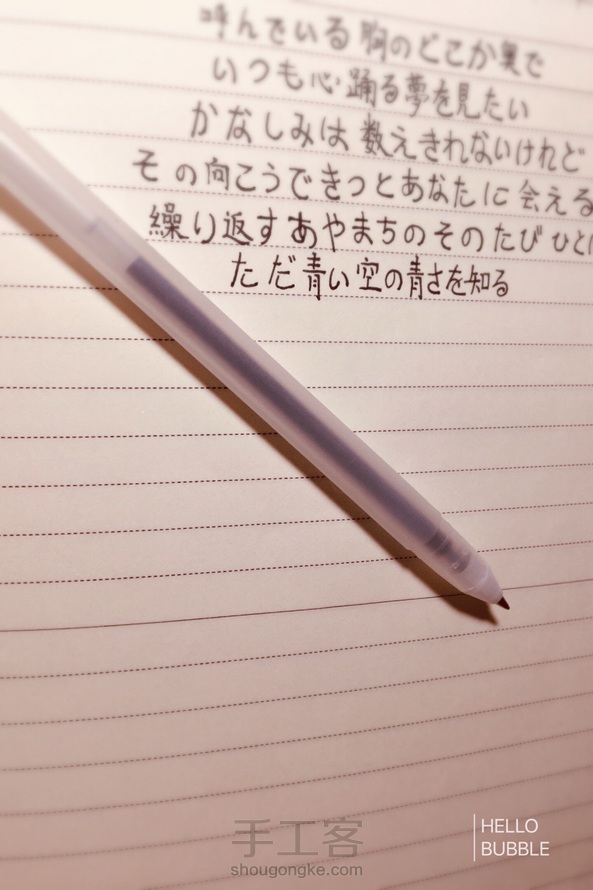 呼んでいる 胸のどこか奥で
いつも心踊る夢を見たい
かなしみは 数えきれないけれど
その向こうできっとあなたに会える
繰り返すあやまちのそのたび ひと
ただ青い空の青さを知る
手工客
shougongke.com
HELLO
BUBBLE